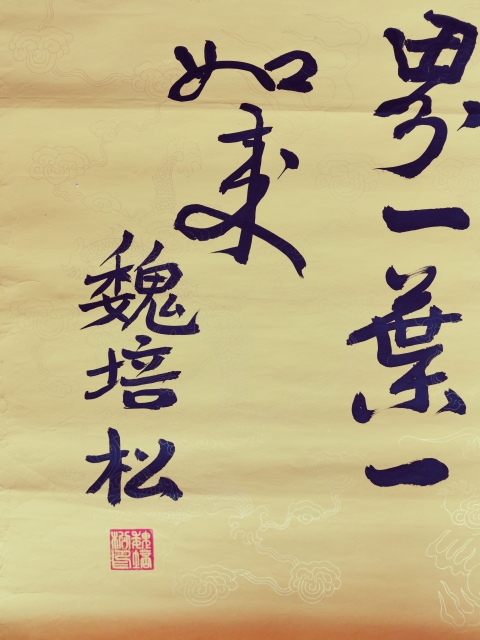 界一葉一
如来
魏培松
魏培松印